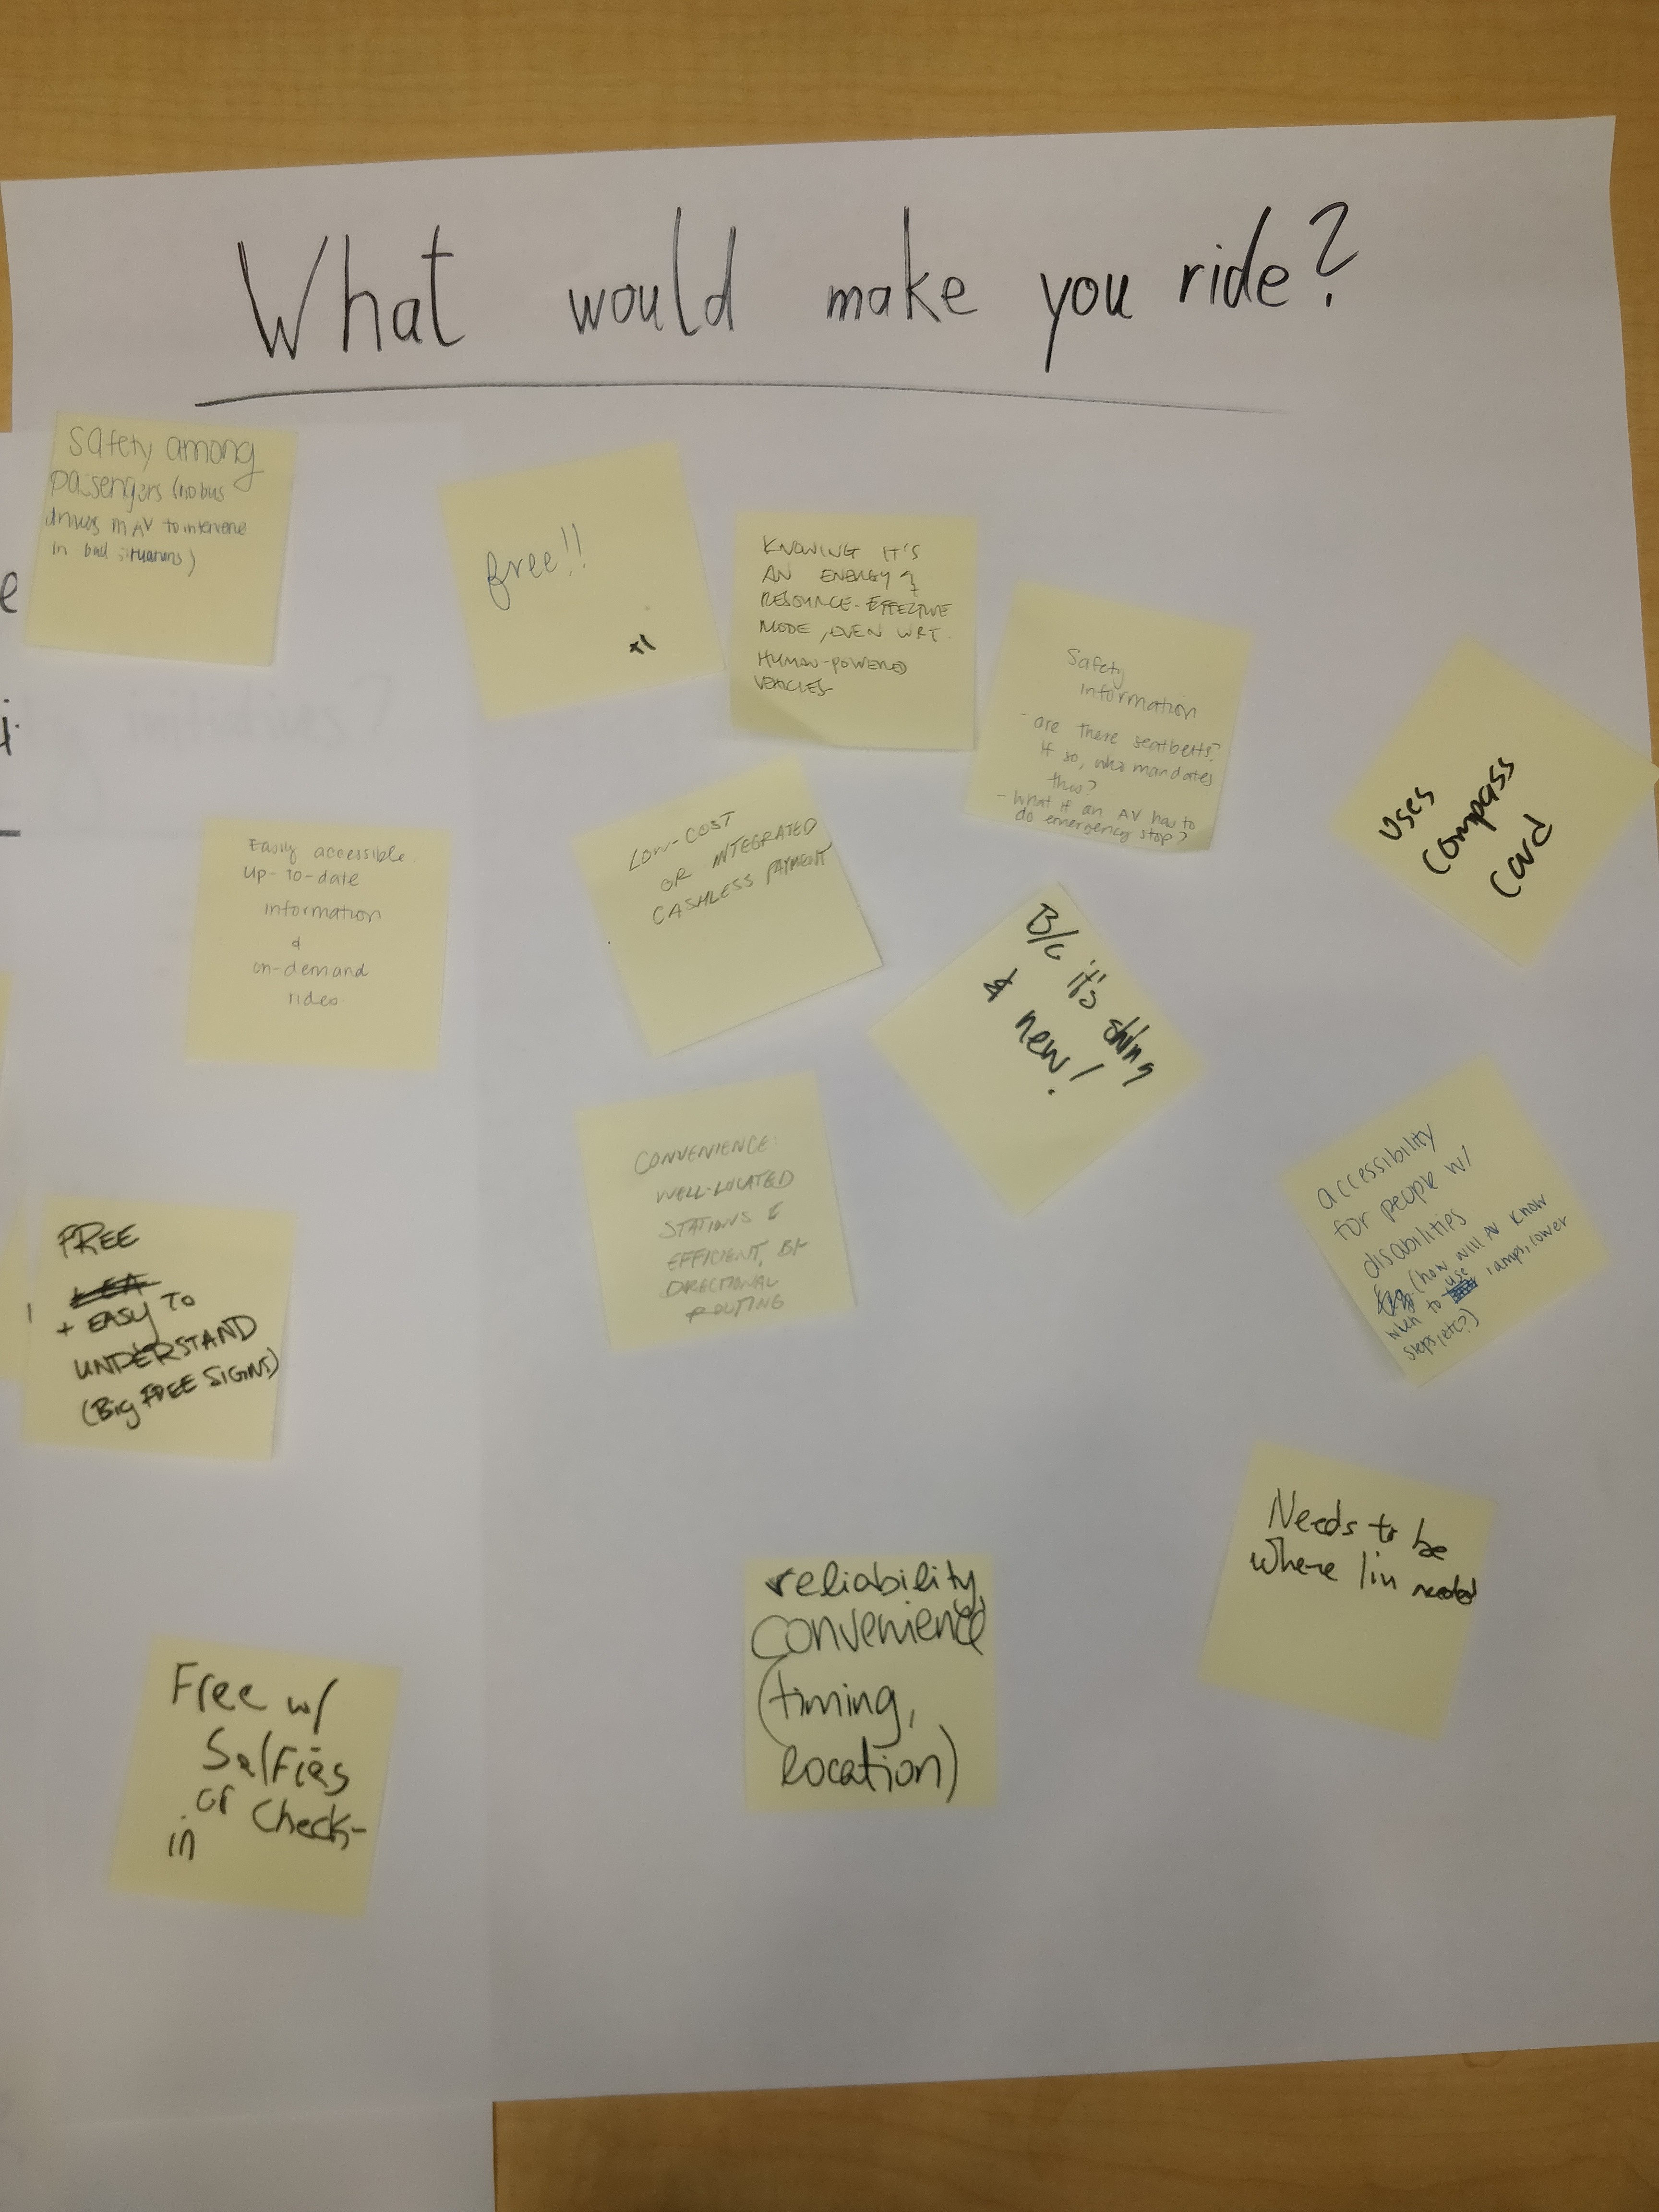 What would make you ride?
Safety among
passengers (no bus
drivers in AV to intervene
in bad situations)
free!!
+1
KNOWING IT'S
AN ENERGY &
RESOURCE-EFFECTIVE
MODE, EVEN WRT.
HUMAN-POWERED
VEHICLES
Safety
information
- are there seatbelts?
If so, who mandates
this?
- What if an AV has to
do emergency stop?
Uses
Compass
Card
Easily accessible
up-to-date
information
&
on-demand
rides
LOW-COST
OR INTEGRATED
CASHLESS PAYMENT
B/c it's shiny
& new!
CONVENIENCE:
WELL-LOCATED
STATIONS &
EFFICIENT, BI-
DIRECTIONAL
ROUTING
accessibility
for people w/
disabilities
(how will AV know
when to use ramps, lower
steps, etc?)
FREE
+ EASY TO
UNDERSTAND
(Big FREE SIGNS)
Needs to be
where I'm needed
reliability,
convenience
(timing,
location)
Free w/
Selfies
or Check-
in
initiatives?